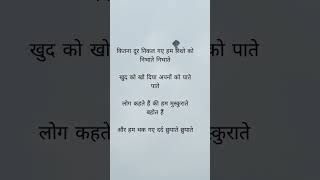 कितना दूर निकल गए हम रिश्ते को
निभाते निभाते
खुद को खो दिया अपनों को पाते
पाते
लोग कहते हैं की हम मुस्कुराते
बहोत हैं
और हम थक गए दर्द छुपाते छुपाते
खुद को खो
लोग कहते